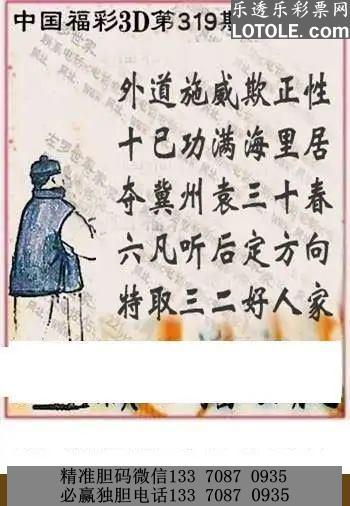 中国福彩3D第319期
乐透乐彩票网
LOTOLE.com
外道施威欺正性
十已功满海里居
夺冀州袁三十春
六凡听后定方向
特取三二好人家
精准胆码微信133 7087 0935
必赢独胆电话133 7087 0935